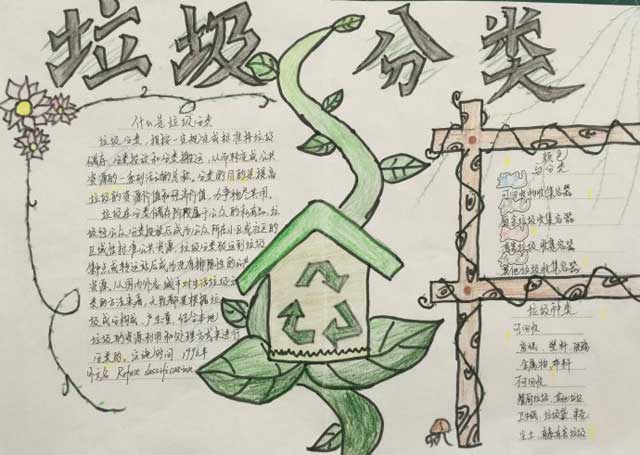 垃圾分类
什么是垃圾分类
垃圾分类，指按一定规定或标准将垃圾
储存、分类投放和分类搬运，从而转变成公共
资源的一系列活动的总称。分类的目的是提高
垃圾的资源价值和经济价值，力争物尽其用。
垃圾在分类储存阶段属于公众的私有品，垃
圾经公众分类投放后成为公众所在小区或社区的
区域性准公共资源，垃圾分类驳运到垃圾
集中点或转运站后成为没有排除性的公共
资源。从国内外各城市对生活垃圾分
类的方法来看，大致都是根据垃
圾成分构成、产生量，结合本地
垃圾的资源利用和处理方式来进行
分类的。实施时间 1996年
外文名 Refuse classification
颜色
与分类
可回收物收集容器
厨余垃圾收集容器
有害垃圾收集容器
其他垃圾收集容器
垃圾种类
可回收
废纸、塑料、玻璃
金属物、布料
不可回收
餐厨垃圾
卫生纸、垃圾袋、果壳
尘土、有毒有害垃圾